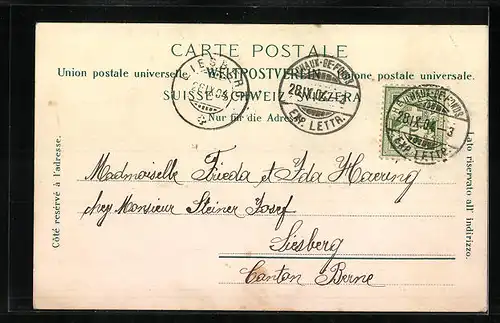 CARTE POSTALE
Union postale universelle. WELTPOSTVEREIN. Unione postale universale.
SUISSE SCHWEIZ SVIZZERA
Nur für die Adresse
LIESBERG
28.IX.04
CHAUX-DE-FONDS
28.IX.04.-3
EXP. LETTR.
CHAUX-DE-FONDS
28.IX.04.-3
EXP. LETTR.
Côté reservé à l'adresse.
Lato riservato all' indirizzo.
Mademoiselle Frieda et Ida Haering
chez Monsieur Steiner Josef
Liesberg
Canton Berne